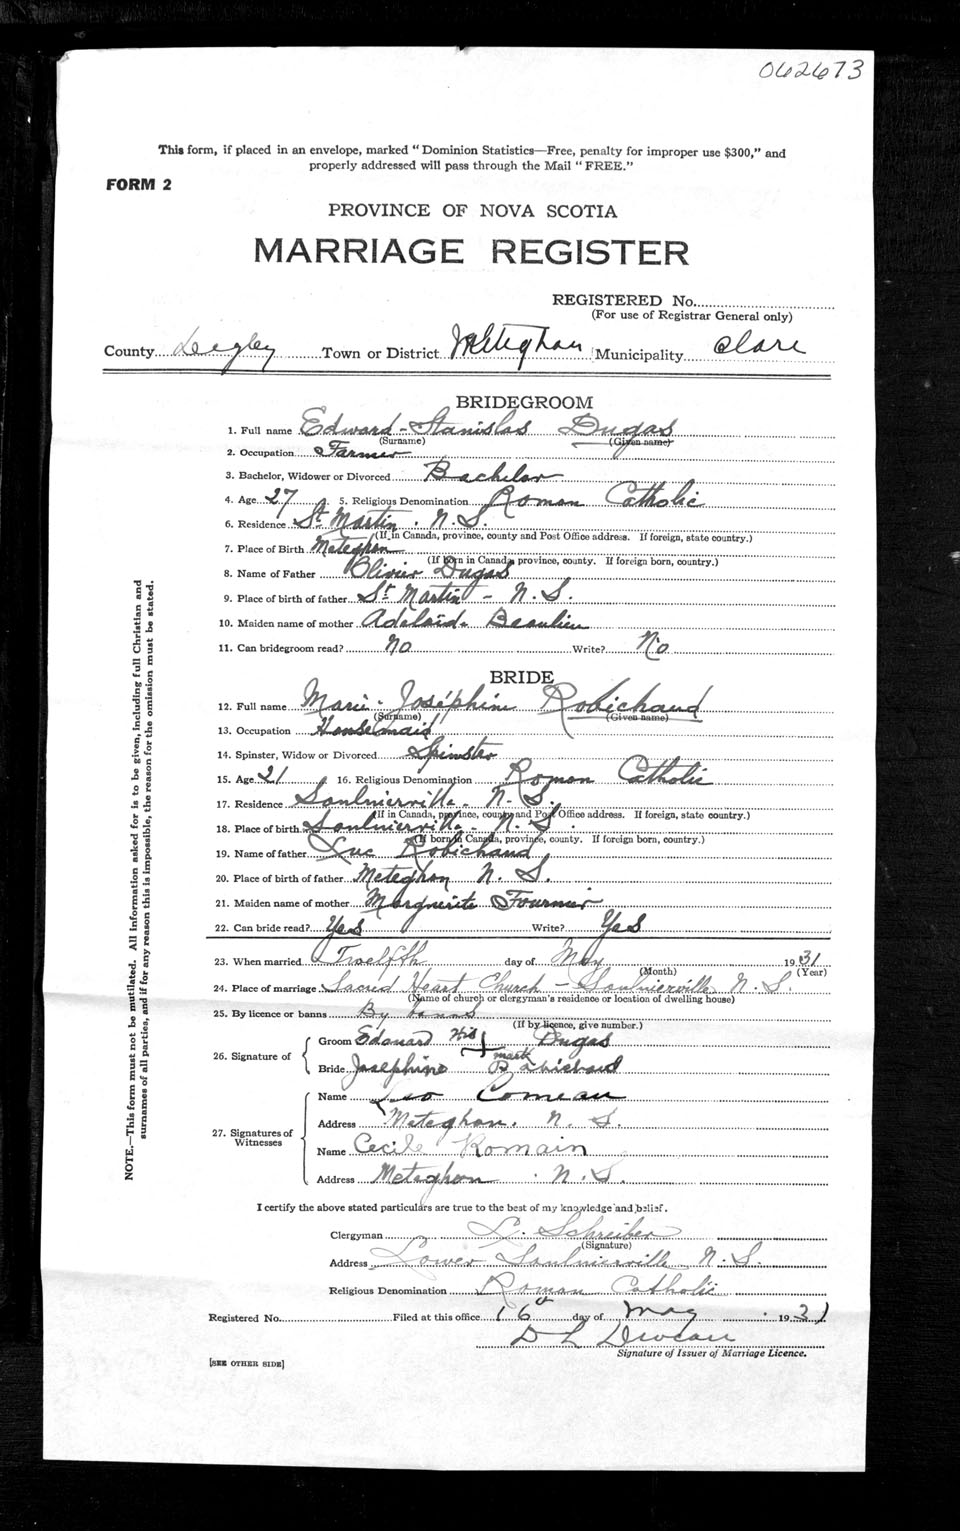 062673
This form, if placed in an envelope, marked "Dominion Statistics—Free, penalty for improper use $300," and
properly addressed will pass through the Mail "FREE."
FORM 2
PROVINCE OF NOVA SCOTIA
MARRIAGE REGISTER
REGISTERED No.
(For use of Registrar General only)
County Digby Town or District Meteghan Municipality Clare
BRIDEGROOM
1. Full name Edward-Stanislas Dugas
(Surname) (Given name)
2. Occupation Farmer
3. Bachelor, Widower or Divorced Bachelor
4. Age 27 5. Religious Denomination Roman Catholic
6. Residence St Martin. N.S.
(If in Canada, province, county and Post Office address. If foreign, state country.)
7. Place of Birth Meteghan
(If born in Canada, province, county. If foreign born, country.)
8. Name of Father Olivier Dugas
9. Place of birth of father St Martin - N.S.
10. Maiden name of mother Adelaide Beaulieu
11. Can bridegroom read? No Write? No
BRIDE
12. Full name Marie-Joséphine Robichaud
(Surname) (Given name)
13. Occupation Housemaid
14. Spinster, Widow or Divorced Spinster
15. Age 21 16. Religious Denomination Roman Catholic
17. Residence Saulnierville. N.S.
(If in Canada, province, county and Post Office address. If foreign, state country.)
18. Place of birth Saulnierville - N.S.
(If born in Canada, province, county. If foreign born, country.)
19. Name of father Luc Robichaud
20. Place of birth of father Meteghan N.S.
21. Maiden name of mother Marguerite Fournier
22. Can bride read? Yes Write? Yes
23. When married Twelfth day of May 1931
(Month) (Year)
24. Place of marriage Sacred Heart Church - Saulnierville N.S.
(Name of church or clergyman's residence or location of dwelling house)
25. By licence or banns By banns
(If by licence, give number.)
26. Signature of
Groom Edouard His + mark Dugas
Bride Josephine Robichaud
27. Signatures of Witnesses
Name Leo Comeau
Address Meteghan. N.S.
Name Cecile Romain
Address Meteghan N.S.
I certify the above stated particulars are true to the best of my knowledge and belief.
Clergyman L. Schreiber
(Signature)
Address Lower Saulnierville N.S.
Religious Denomination Roman Catholic
Registered No. Filed at this office 16th day of May 1931
D L
Signature of Issuer of Marriage Licence.
[SEE OTHER SIDE]
NOTE.—This form must not be mutilated. All information asked for is to be given, including full Christian and
surnames of all parties, and if for any reason this is impossible, the reason for the omission must be stated.